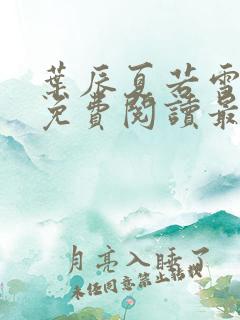 葉辰夏若雪
免費閱讀最
月亮入睡了
未经同意禁止转载